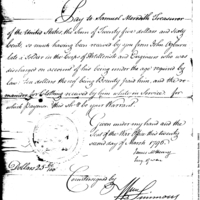 Pay to Samuel Meredith Treasurer
of the United States the sum of Twenty five dollars and sixty
cents, so much having been received by you from John
late a Soldier in the Corps of Artillerists and Engineers who was
discharged on account of his being under the age required by
law. Ten dollars thereof being Bounty paid him, and the re-
mainder for Clothing received by him while in Service for
which payment this shall be your Warrant.
Given under my hand and the
Seal of the War Office this twenty
second day of March 1796.
James McHenry
Secy of War
Dollars 25 60/100
Countersigned by
Wm Simmons